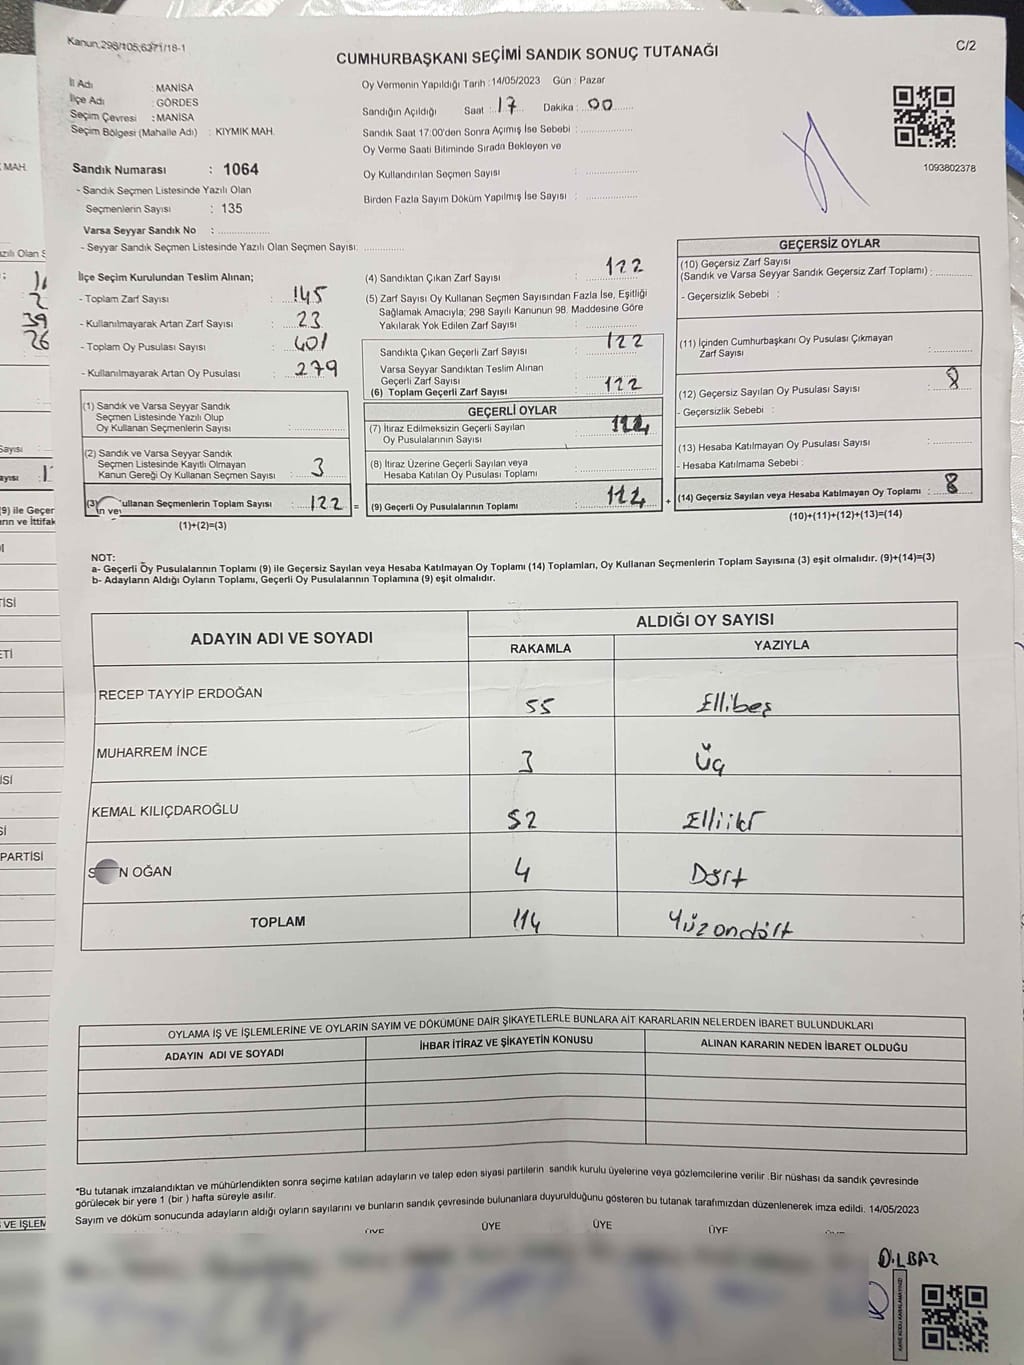 Kanun;298/105;6271/18-1
C/2
CUMHURBAŞKANI SEÇİMİ SANDIK SONUÇ TUTANAĞI
İl Adı : MANİSA
İlçe Adı : GÖRDES
Seçim Çevresi : MANİSA
Seçim Bölgesi (Mahalle Adı) : KIYMIK MAH.
Oy Vermenin Yapıldığı Tarih : 14/05/2023 Gün : Pazar
Sandığın Açıldığı Saat : 17 Dakika : 00
Sandık Saat 17:00'den Sonra Açımış İse Sebebi :
Oy Verme Saati Bitiminde Sırada Bekleyen ve
Oy Kullandırılan Seçmen Sayısı :
Birden Fazla Sayım Döküm Yapılmış İse Sayısı :
1093802378
Sandık Numarası : 1064
- Sandık Seçmen Listesinde Yazılı Olan
Seçmenlerin Sayısı : 135
Varsa Seyyar Sandık No :
- Seyyar Sandık Seçmen Listesinde Yazılı Olan Seçmen Sayısı:
İlçe Seçim Kurulundan Teslim Alınan;
- Toplam Zarf Sayısı : 145
- Kullanılmayarak Artan Zarf Sayısı : 23
- Toplam Oy Pusulası Sayısı : 401
- Kullanılmayarak Artan Oy Pusulası : 279
(1) Sandık ve Varsa Seyyar Sandık
Seçmen Listesinde Yazılı Olup
Oy Kullanan Seçmenlerin Sayısı :
(2) Sandık ve Varsa Seyyar Sandık
Seçmen Listesinde Kayıtlı Olmayan
Kanun Gereği Oy Kullanan Seçmen Sayısı : 3
(3) ullanan Seçmenlerin Toplam Sayısı : 122 =
(1)+(2)=(3)
(4) Sandıktan Çıkan Zarf Sayısı : 122
(5) Zarf Sayısı Oy Kullanan Seçmen Sayısından Fazla İse, Eşitliği
Sağlamak Amacıyla; 298 Sayılı Kanunun 98. Maddesine Göre
Yakılarak Yok Edilen Zarf Sayısı :
Sandıkta Çıkan Geçerli Zarf Sayısı : 122
Varsa Seyyar Sandıktan Teslim Alınan
Geçerli Zarf Sayısı :
(6) Toplam Geçerli Zarf Sayısı : 122
GEÇERLİ OYLAR
(7) İtiraz Edilmeksizin Geçerli Sayılan
Oy Pusulalarının Sayısı : 114
(8) İtiraz Üzerine Geçerli Sayılan veya
Hesaba Katılan Oy Pusulası Toplamı :
(9) Geçerli Oy Pusulalarının Toplamı : 114 +
GEÇERSİZ OYLAR
(10) Geçersiz Zarf Sayısı
(Sandık ve Varsa Seyyar Sandık Geçersiz Zarf Toplamı) :
- Geçersizlik Sebebi :
(11) İçinden Cumhurbaşkanı Oy Pusulası Çıkmayan
Zarf Sayısı :
(12) Geçersiz Sayılan Oy Pusulası Sayısı : 8
- Geçersizlik Sebebi :
(13) Hesaba Katılmayan Oy Pusulası Sayısı :
- Hesaba Katılmama Sebebi :
(14) Geçersiz Sayılan veya Hesaba Katılmayan Oy Toplamı : 8
(10)+(11)+(12)+(13)=(14)
NOT:
a- Geçerli Oy Pusulalarının Toplamı (9) ile Geçersiz Sayılan veya Hesaba Katılmayan Oy Toplamı (14) Toplamları, Oy Kullanan Seçmenlerin Toplam Sayısına (3) eşit olmalıdır. (9)+(14)=(3)
b- Adayların Aldığı Oyların Toplamı, Geçerli Oy Pusulalarının Toplamına (9) eşit olmalıdır.
ADAYIN ADI VE SOYADI
ALDIĞI OY SAYISI
RAKAMLA YAZIYLA
RECEP TAYYİP ERDOĞAN 55 Ellibeş
MUHARREM İNCE 3 Üç
KEMAL KILIÇDAROĞLU 52 Elliiki
N OĞAN 4 Dört
TOPLAM 114 Yüzondört
OYLAMA İŞ VE İŞLEMLERİNE VE OYLARIN SAYIM VE DÖKÜMÜNE DAİR ŞİKAYETLERLE BUNLARA AİT KARARLARIN NELERDEN İBARET BULUNDUKLARI
ADAYIN ADI VE SOYADI İHBAR İTİRAZ VE ŞİKAYETİN KONUSU ALINAN KARARIN NEDEN İBARET OLDUĞU
*Bu tutanak imzalandıktan ve mühürlendikten sonra seçime katılan adayların ve talep eden siyasi partilerin sandık kurulu üyelerine veya gözlemcilerine verilir. Bir nüshası da sandık çevresinde
görülecek bir yere 1 (bir ) hafta süreyle asılır.
Sayım ve döküm sonucunda adayların aldığı oyların sayılarını ve bunların sandık çevresinde bulunanlara duyurulduğunu gösteren bu tutanak tarafımızdan düzenlenerek imza edildi. 14/05/2023
ÜYE ÜYE ÜYE ÜYE
DİLBAZ